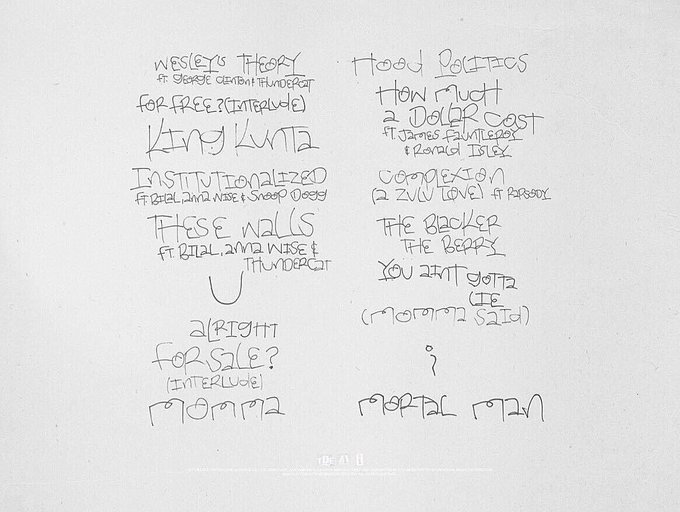 WESLEY'S THEORY
ft. GEORGE CLINTON & THUNDERCAT
FOR FREE? (INTERLUDE)
KING KUNTA
INSTITUTIONALIZED
ft. BILAL, ANNA WISE & SNOOP DOGG
THESE WALLS
ft. BILAL, ANNA WISE &
THUNDERCAT
U
ALRIGHT
FOR SALE?
(INTERLUDE)
MOMMA
HOOD POLITICS
HOW MUCH
A DOLLAR COST
ft. JAMES FAUNTLEROY
& RONALD ISLEY
COMPLEXION
(A ZULU LOVE) ft RAPSODY
THE BLACKER
THE BERRY
YOU AINT GOTTA
LIE
(MOMMA SAID)
i
MORTAL MAN